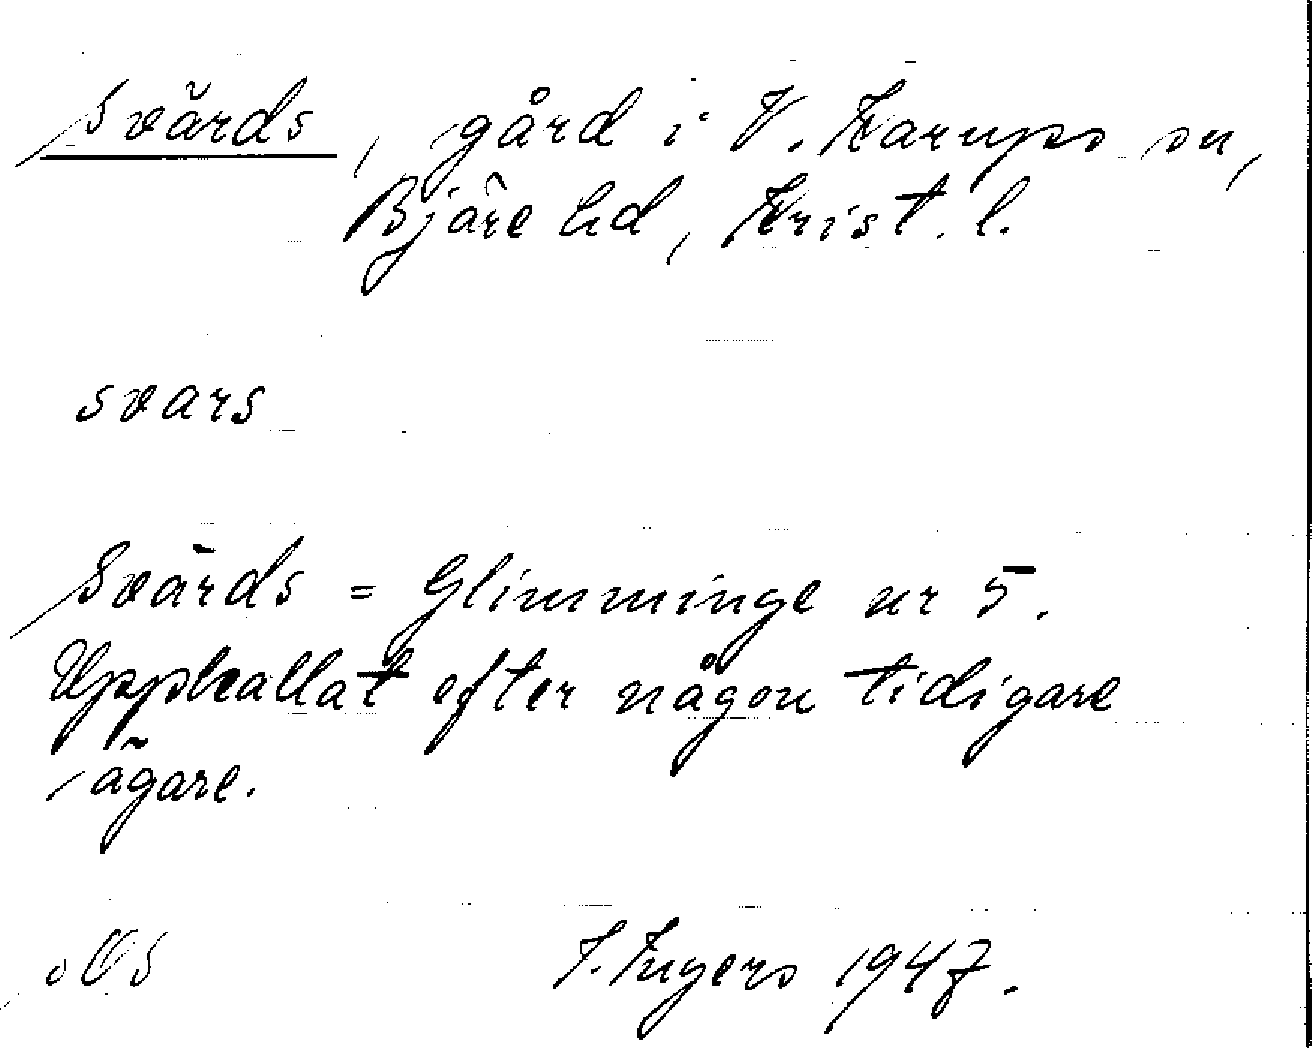 Svärds, gård i V. Karups sn,
Bjäre hd, Krist. l.
svars
Svärds = Glimminge nr 5.
Uppkallat efter någon tidigare
ägare.
I. Ingers 1947.